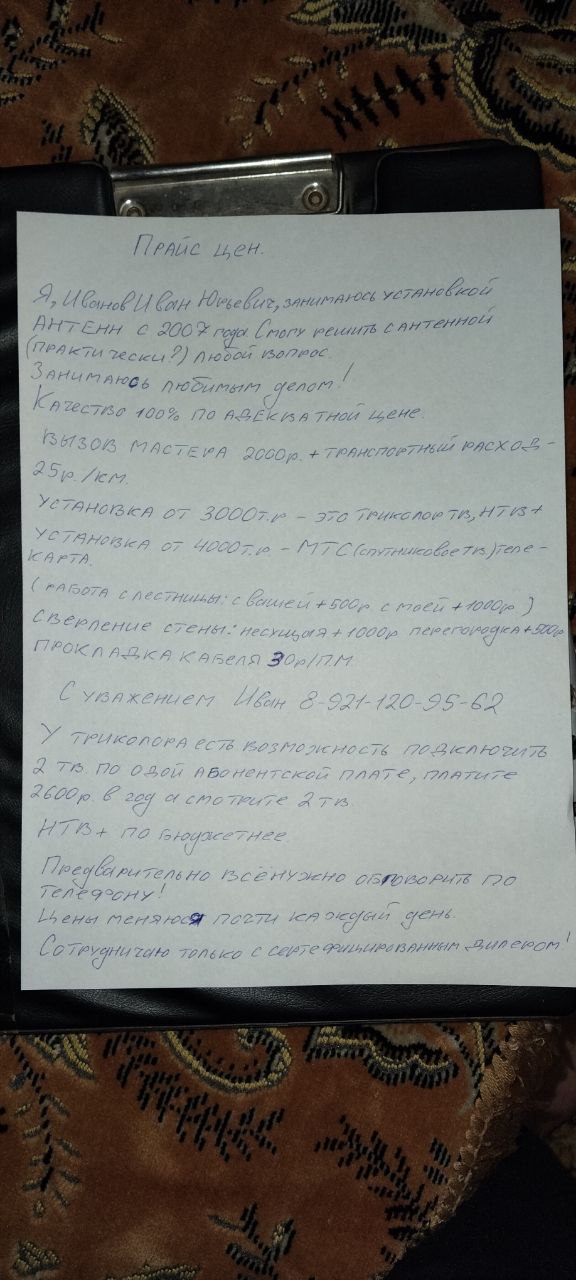 Прайс цен.
Я, Иванов Иван Юрьевич, занимаюсь установкой
антенн с 2007 года. Смогу решить с антенной
(практически?) любой вопрос.
Занимаюсь любимым делом!
Качество 100% по адекватной цене.
Вызов мастера 2000р. + транспортный расход -
25р./км.
Установка от 3000т.р - это Триколор ТВ, НТВ+
Установка от 4000т.р. - МТС (спутниковое тв) теле-
карта.
(работа с лестницы: с вашей +500р с моей +1000р)
Сверление стены: несущая +1000р перегородка +500р
Прокладка кабеля 30р/п.м
С уважением Иван 8-921-120-95-62
У триколора есть возможность подключить
2 тв по одой абонентской плате, платите
2600р. в год а смотрите 2 тв.
НТВ+ по бюджетнее.
Предварительно всё нужно обговорить по
телефону!
Цены меняюся почти каждый день.
Сотрудничаю только с сертефицированным дилером!